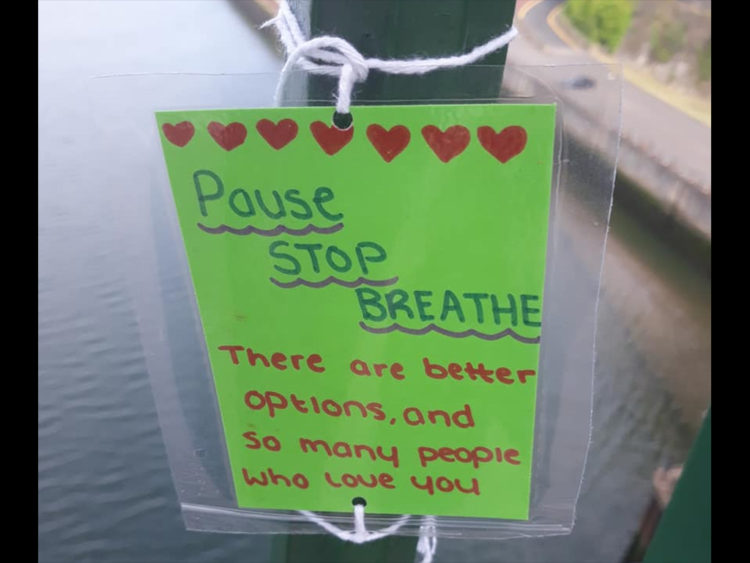 Pause
STOP
BREATHE
There are better
options, and
so many people
who love you